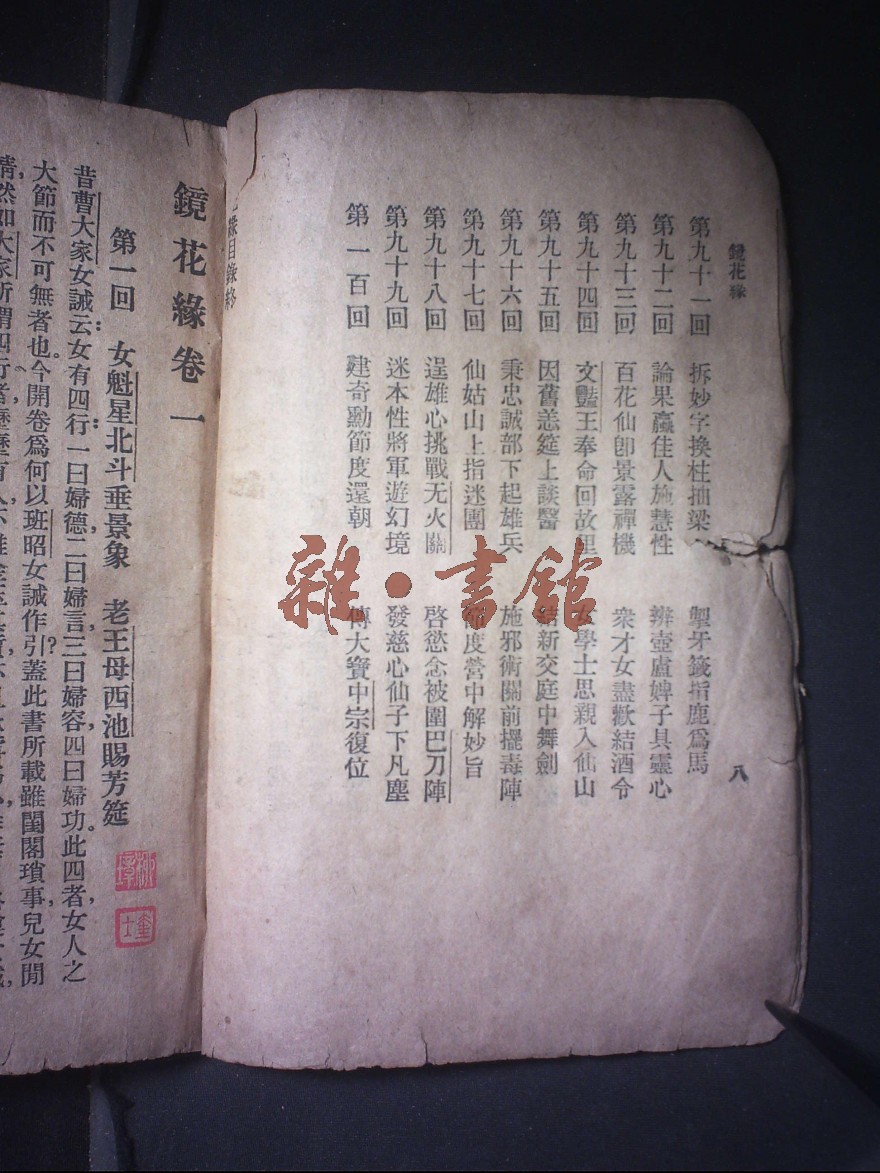 鏡花緣
八
第九十一回 拆妙字換柱抽梁 掣牙籤指鹿爲馬
第九十二回 論果蠃佳人施慧性 辨壺盧婢子具靈心
第九十三回 百花仙卽景露禪機 衆才女盡歡結酒令
第九十四回 文豔王奉命回故里 女學士思親入仙山
第九十五回 因舊恙筵上談醫 結新交庭中舞劍
第九十六回 秉忠誠部下起雄兵 施邪術關前擺毒陣
第九十七回 仙姑山上指迷團 節度營中解妙旨
第九十八回 逞雄心挑戰无火關 啓慾念被圍巴刀陣
第九十九回 迷本性將軍遊幻境 發慈心仙子下凡塵
第一百回 建奇勳節度還朝 傳大寶中宗復位
目錄終
鏡花緣卷一
第一回 女魁星北斗垂景象 老王母西池賜芳筵
昔曹大家女誡云女有四行一曰婦德二曰婦言三曰婦容四曰婦功此四者女人之
大節而不可無者也今開卷爲何以班昭女誡作引蓋此書所載雖閨閣瑣事兒女閒
情然如大家所謂四行者歷歷有人不
雜·書館